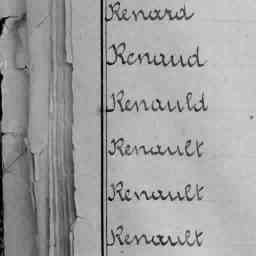 Renard
Renaud
Renauld
Renault
Renault
Renault